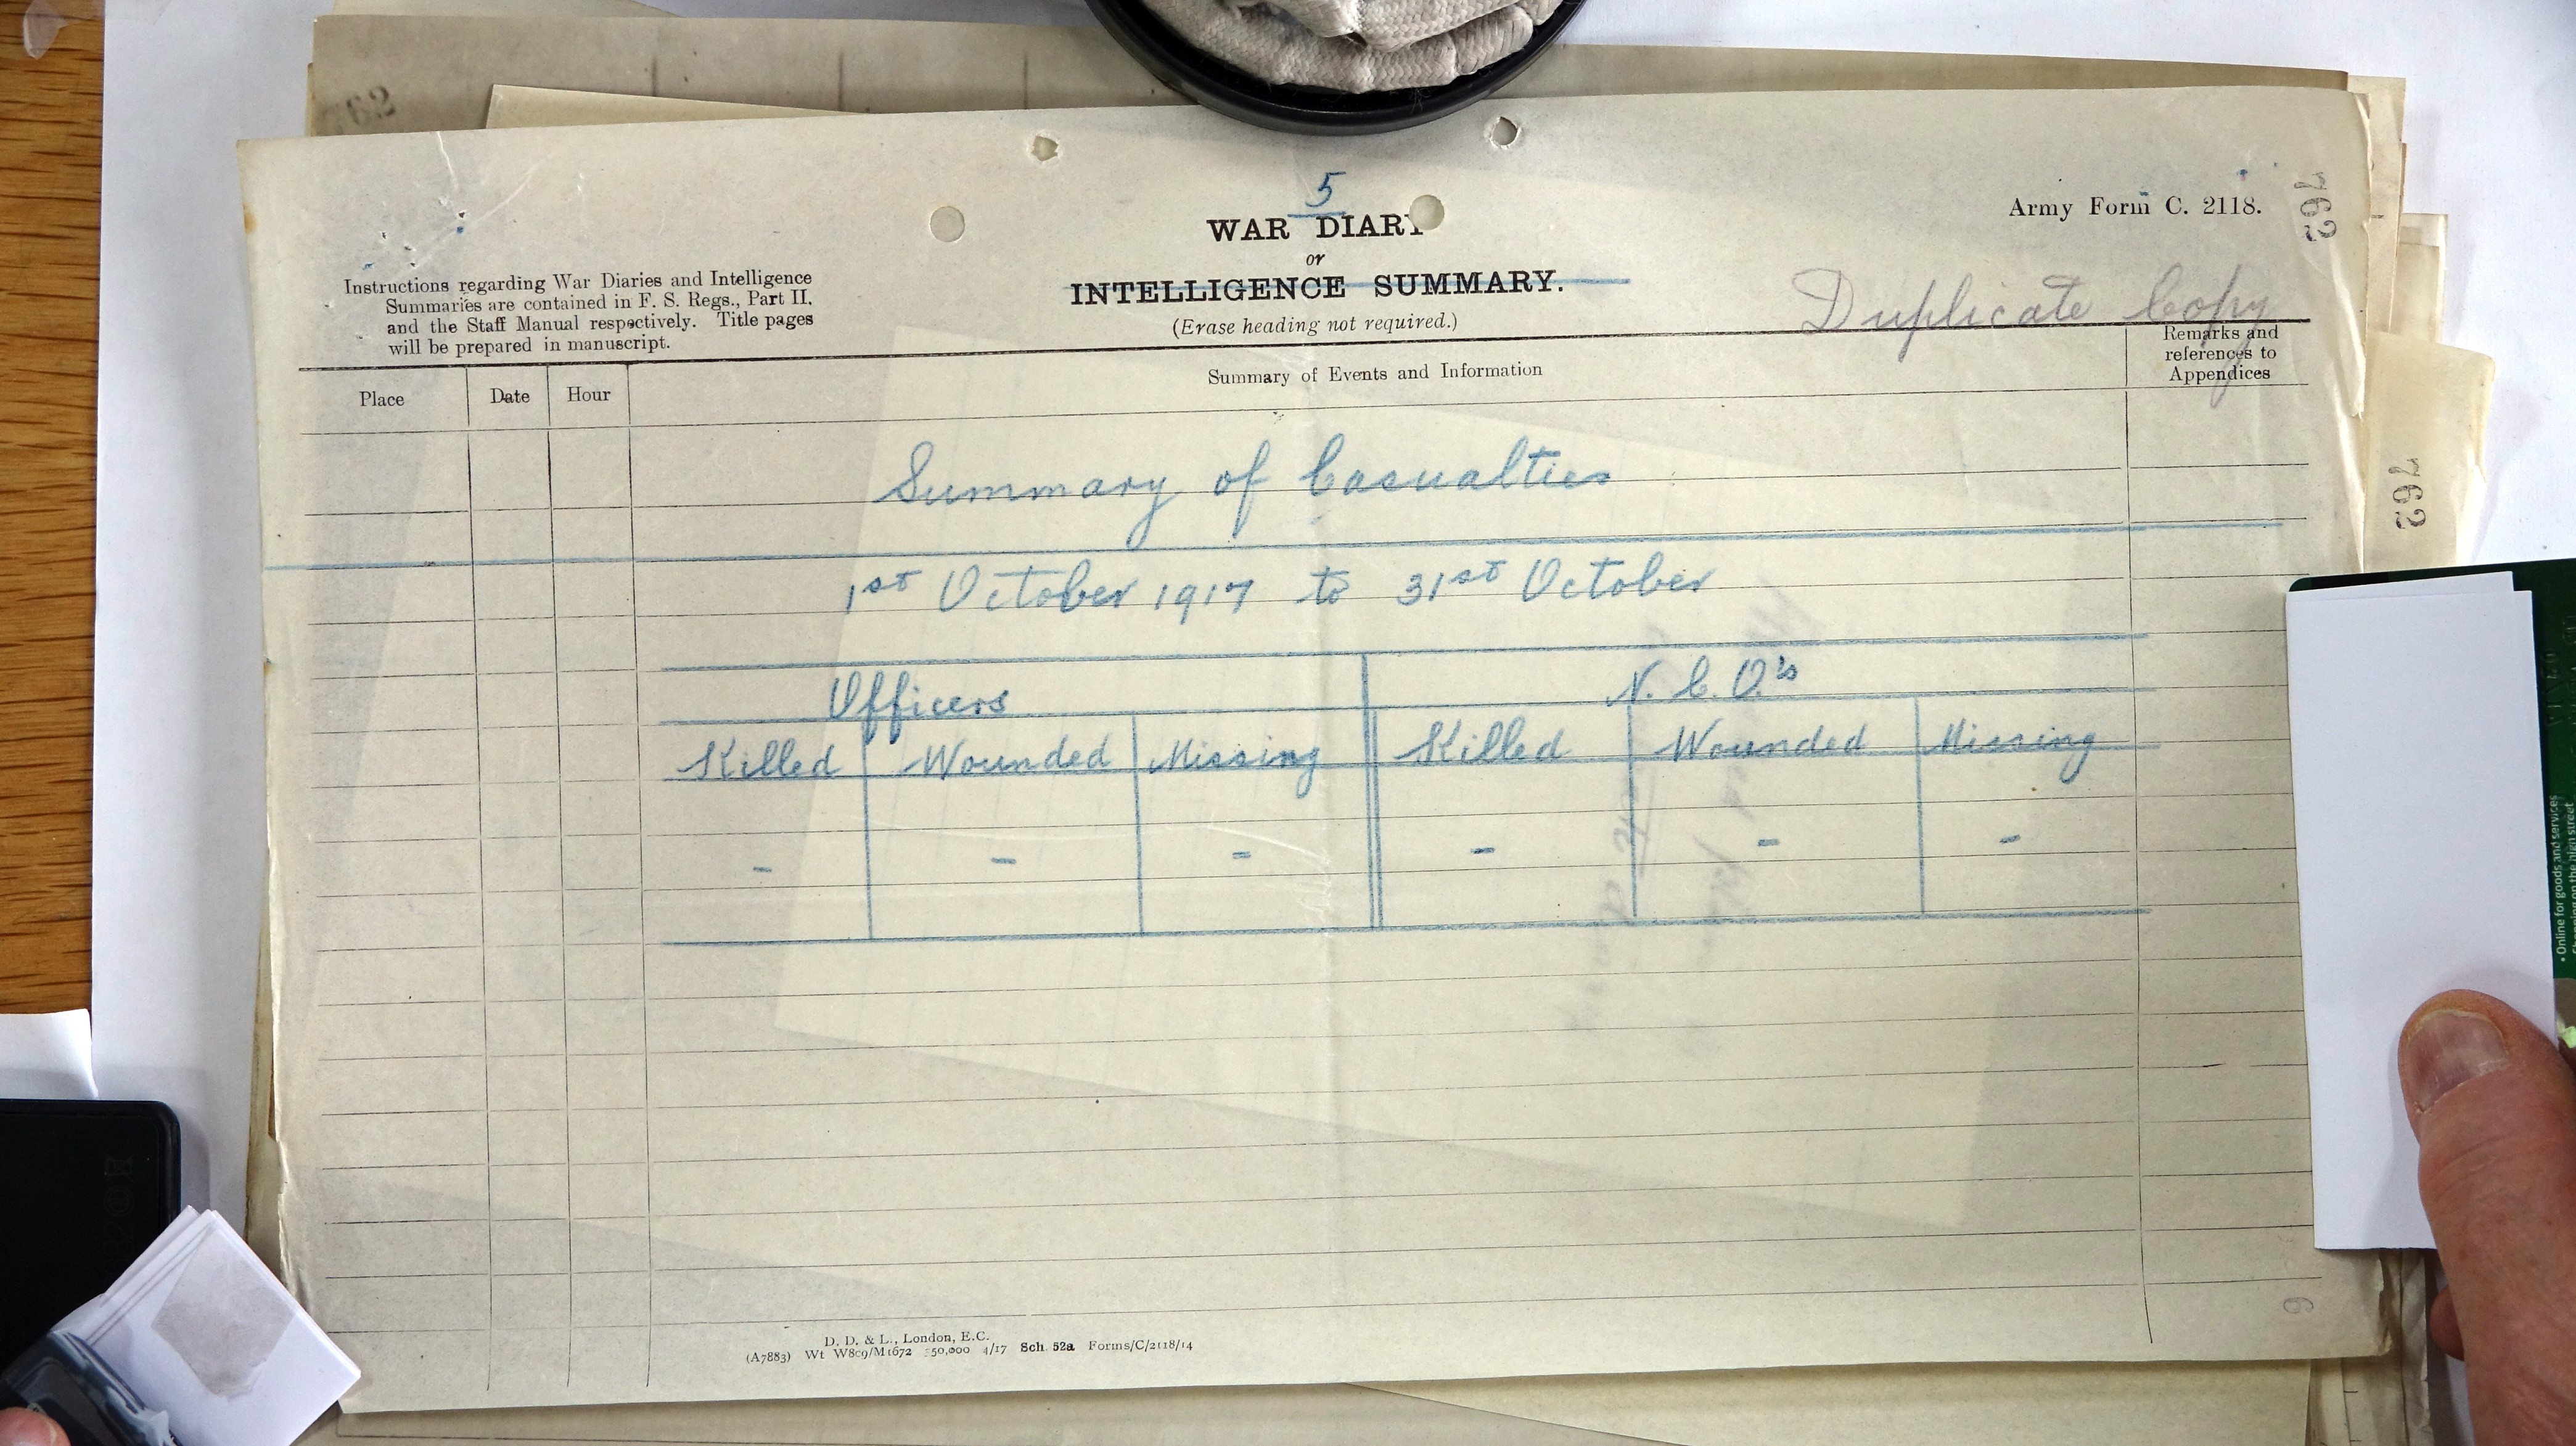 5
WAR DIARY
or
INTELLIGENCE SUMMARY.
(Erase heading not required.)
Army Form C. 2118.
762
Duplicate Copy
Instructions regarding War Diaries and Intelligence
Summaries are contained in F. S. Regs., Part II.
and the Staff Manual respectively. Title pages
will be prepared in manuscript.
Place Date Hour Summary of Events and Information Remarks and
references to
Appendices
Summary of Casualties
1st October 1917 to 31st October
Officers N.C.O.'s
Killed Wounded Missing Killed Wounded Missing
- - - - - -
762
6
D. D. & L., London, E.C.
(A7883) Wt W8c9/M1672 350,000 4/17 Sch. 52a Forms/C/2118/14
• Online for goods and services